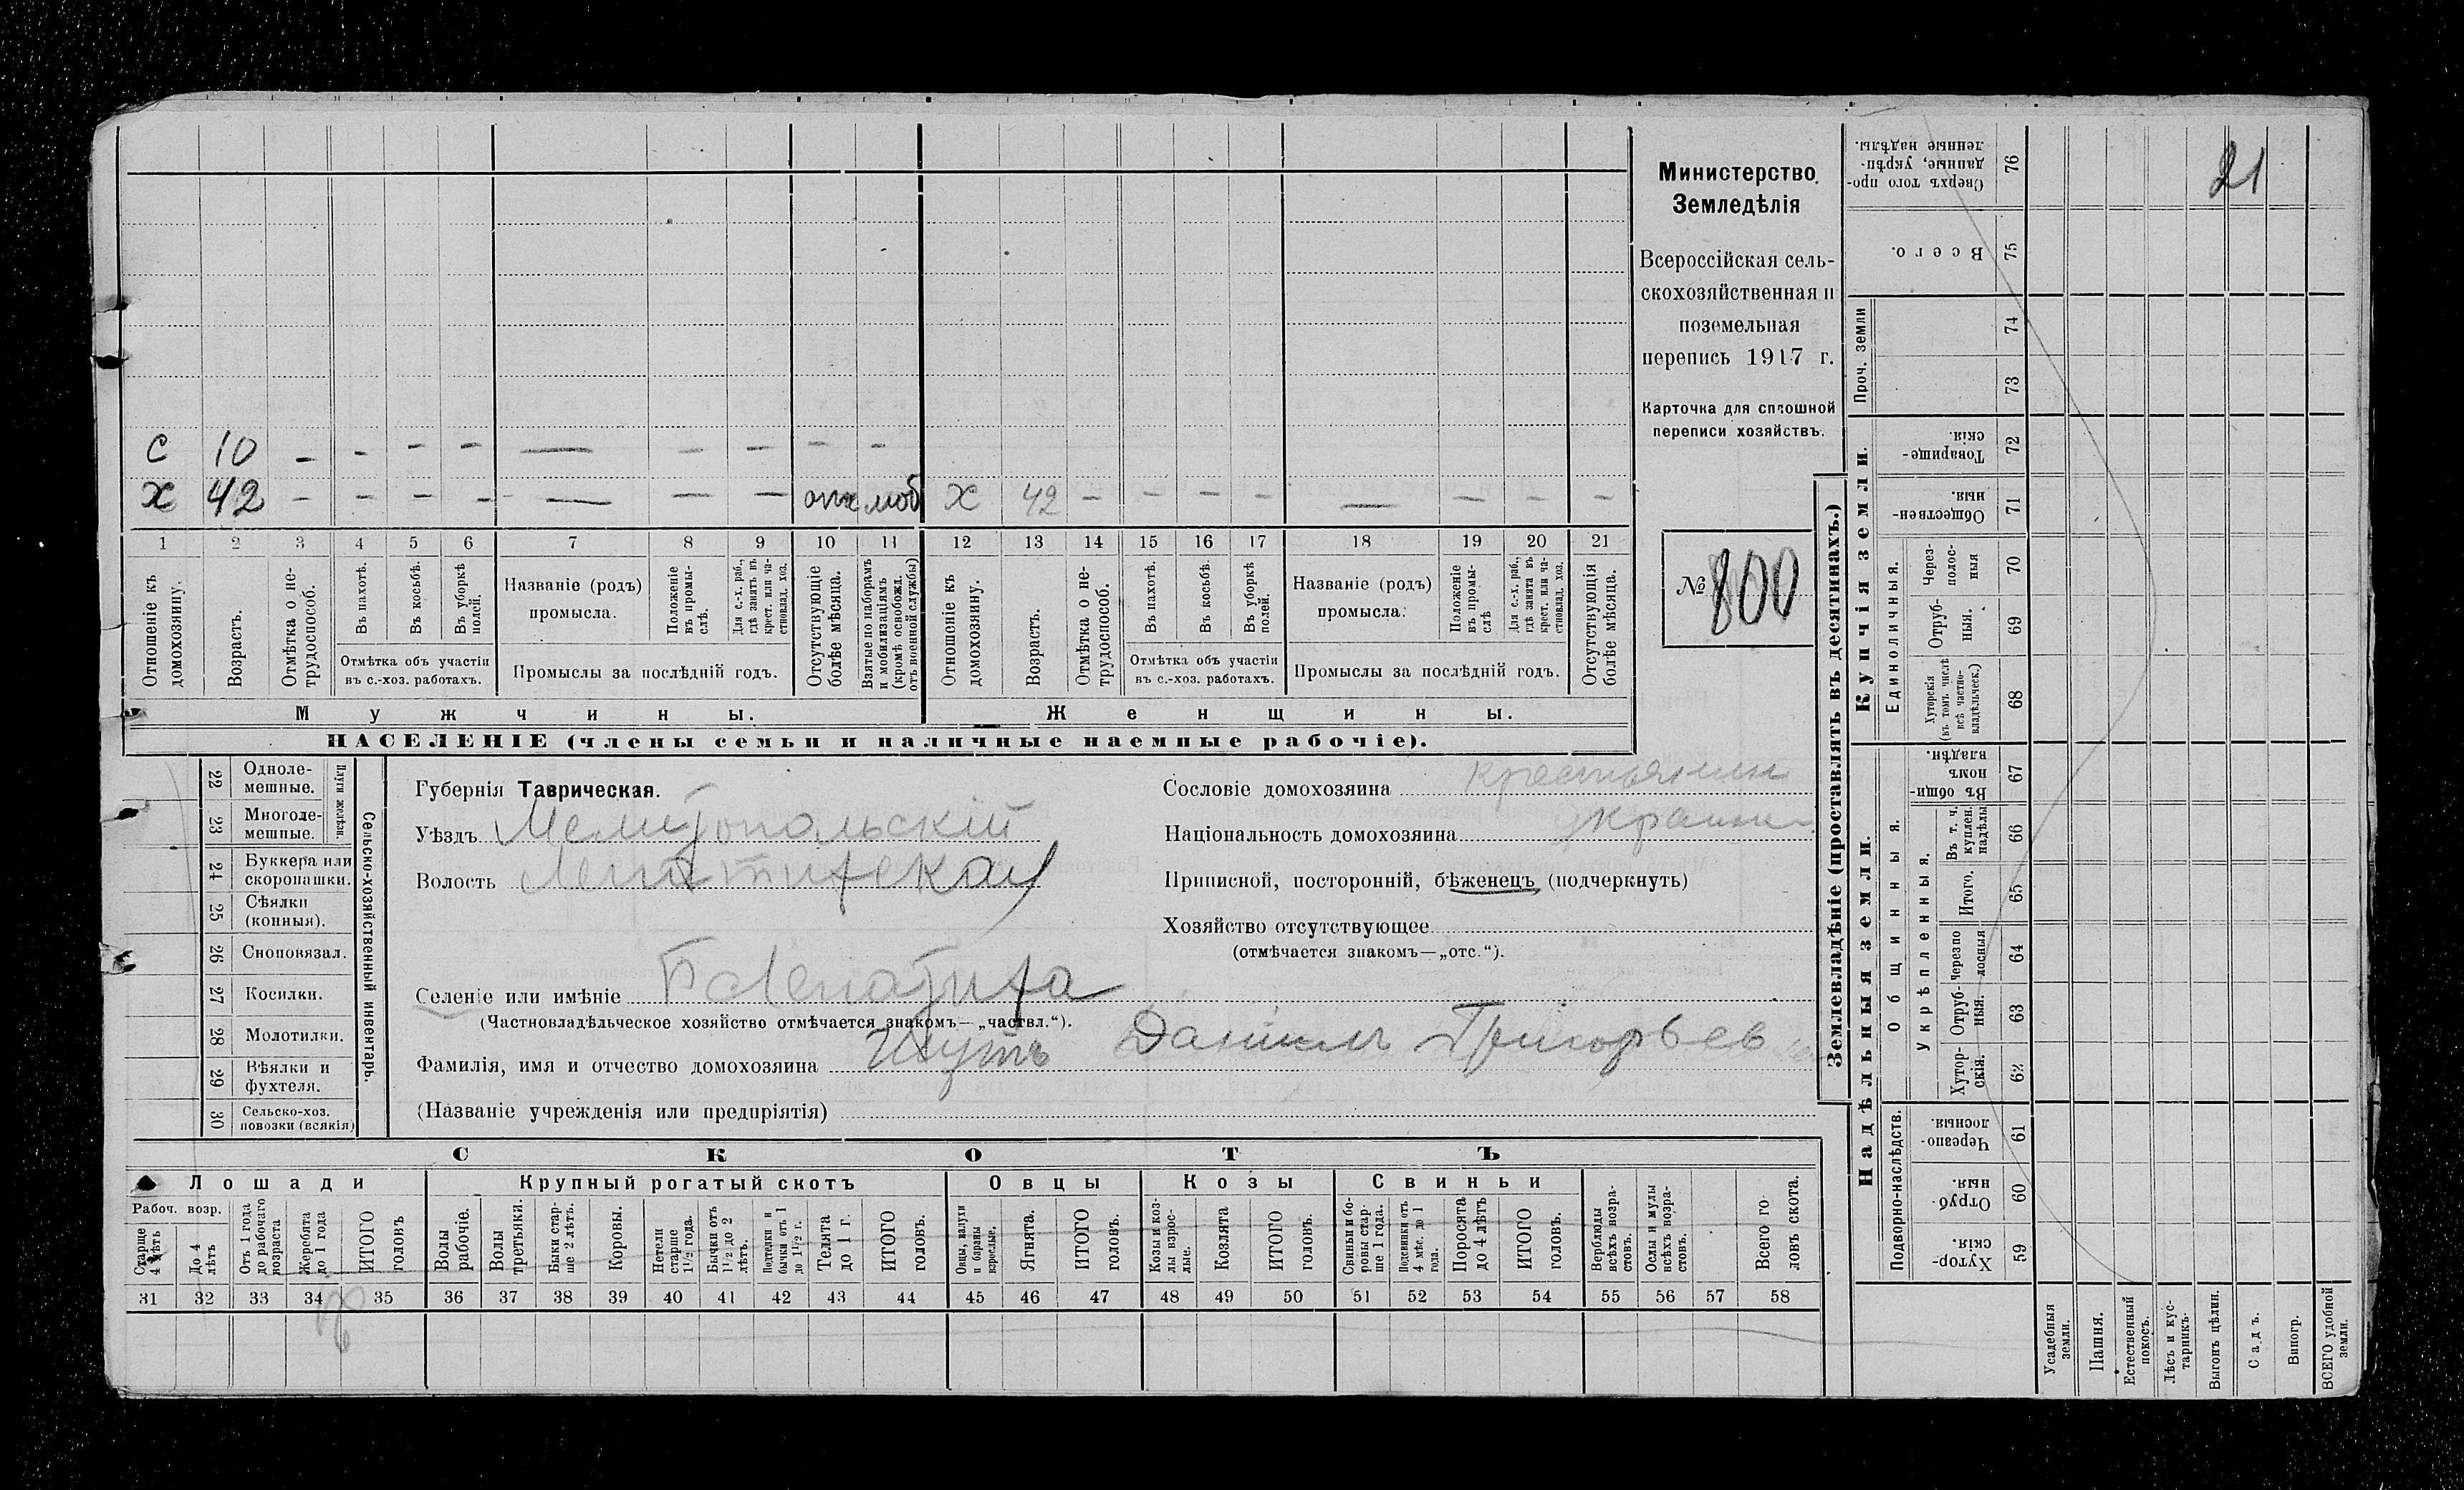 Министерство
Земледѣлія
Всероссійская сель-
скохозяйственная и
поземельная
перепись 1917 г.
Карточка для сплошной
переписи хозяйствъ.
№ 800
21
С 10 – – – – – – – – –
Х 42 – – – – – – – отс моб Х 42 – – – – – – – –
1 2 3 4 5 6 7 8 9 10 11 12 13 14 15 16 17 18 19 20 21
Отношеніе къ домохозяину.
Возрастъ.
Отмѣтка о не-трудоспособ.
Въ пахотѣ.
Въ косьбѣ.
Въ уборкѣ полей.
Отмѣтка объ участіи
въ с.-хоз. работахъ.
Названіе (родъ)
промысла.
Положеніе въ промы-слѣ.
Для с.-х. раб., гдѣ занятъ въ крест. или ча-стновлад. хоз.
Промыслы за послѣдній годъ.
Отсутствующіе болѣе мѣсяца.
Взятые по наборамъ и мобилизаціямъ (кромѣ освобожд. отъ военной службы)
Отношеніе къ домохозяину.
Возрастъ.
Отмѣтка о не-трудоспособ.
Въ пахотѣ.
Въ косьбѣ.
Въ уборкѣ полей.
Отмѣтка объ участіи
въ с.-хоз. работахъ.
Названіе (родъ)
промысла.
Положеніе въ промы-слѣ
Для с.-х. раб., гдѣ занята въ крест. или ча-стновлад. хоз.
Промыслы за послѣдній годъ.
Отсутствующія болѣе мѣсяца.
Мужчины.
Женщины.
НАСЕЛЕНІЕ (члены семьи и наличные наемные рабочіе).
Сельско-хозяйственный инвентарь.
Плуги желѣзн.
22 Одноле-мешные.
23 Многоле-мешные.
24 Буккера или скоропашки.
25 Сѣялки (конныя).
26 Сноповязал.
27 Косилки.
28 Молотилки.
29 Вѣялки и фухтеля.
30 Сельско-хоз. повозки (всякія)
Губернія Таврическая.
Уѣздъ Мелитопольскій
Волость
Селеніе или имѣніе
(Частновладѣльческое хозяйство отмѣчается знакомъ—„частвл.“).
Фамилія, имя и отчество домохозяина Шутъ Даніилъ Григорьев
(Названіе учрежденія или предпріятія)
Сословіе домохозяина крестьянин
Національность домохозяина украин
Приписной, посторонній, бѣженецъ (подчеркнуть)
Хозяйство отсутствующее
(отмѣчается знакомъ—„отс.“).
СКОТЪ
Лошади
Рабоч. возр.
Старще 4 лѣтъ
До 4 лѣтъ
Отъ 1 года до рабочаго возраста
Жеребята до 1 года
ИТОГО головъ
Крупный рогатый скотъ
Волы рабочіе.
Волы третьяки.
Быки стар-ше 2 лѣтъ.
Коровы.
Нетели старше 1½ года.
Бычки отъ 1½ до 2 лѣтъ.
Подтелки и бычки отъ 1 до 1½ г.
Телята до 1 г.
ИТОГО головъ.
Овцы
Овцы, валухи и бараны взрослые.
Ягнята.
ИТОГО головъ.
Козы
Козы и коз-лы взрос-лые.
Козлята
ИТОГО головъ.
Свиньи
Свиньи и бо-ровы стар-ше 1 года.
Подсвинки отъ 4 мѣс. до 1 года.
Поросята до 4 лѣтъ
ИТОГО головъ.
Верблюды всѣхъ возра-стовъ.
Ослы и мулы всѣхъ возра-стовъ.
Всего го-ловъ скота.
31 32 33 34 35 36 37 38 39 40 41 42 43 44 45 46 47 48 49 50 51 52 53 54 55 56 57 58
Землевладѣніе (проставлять въ десятинахъ.)
Купчія земли.
Надѣльныя земли.
Сверхъ того про-данные, укрѣп-ленные надѣлы. 76
Всего. 75
Проч. земли 74
73
Товарище-скія. 72
Обществен-ныя. 71
Единоличныя.
Через-полос-ныя 70
Отруб-ныя. 69
Хуторскія (въ томъ числѣ всѣ частно-владѣльческ.) 68
Общинныя.
Въ общи-номъ владѣн. 67
Укрѣпленныя.
Въ т. ч. куплен. надѣлы 66
Итого. 65
Черезпо-лосныя 64
Отруб-ныя. 63
Хутор-скія. 62
Подворно-наслѣдств.
Черезпо-лосныя. 61
Отруб-ныя. 60
Хутор-скія. 59
Усадебныя земли.
Пашня.
Естественный покосъ.
Лѣсъ и кус-тарникъ.
Выгонъ цѣлин.
Садъ.
Виногр.
ВСЕГО удобной земли.